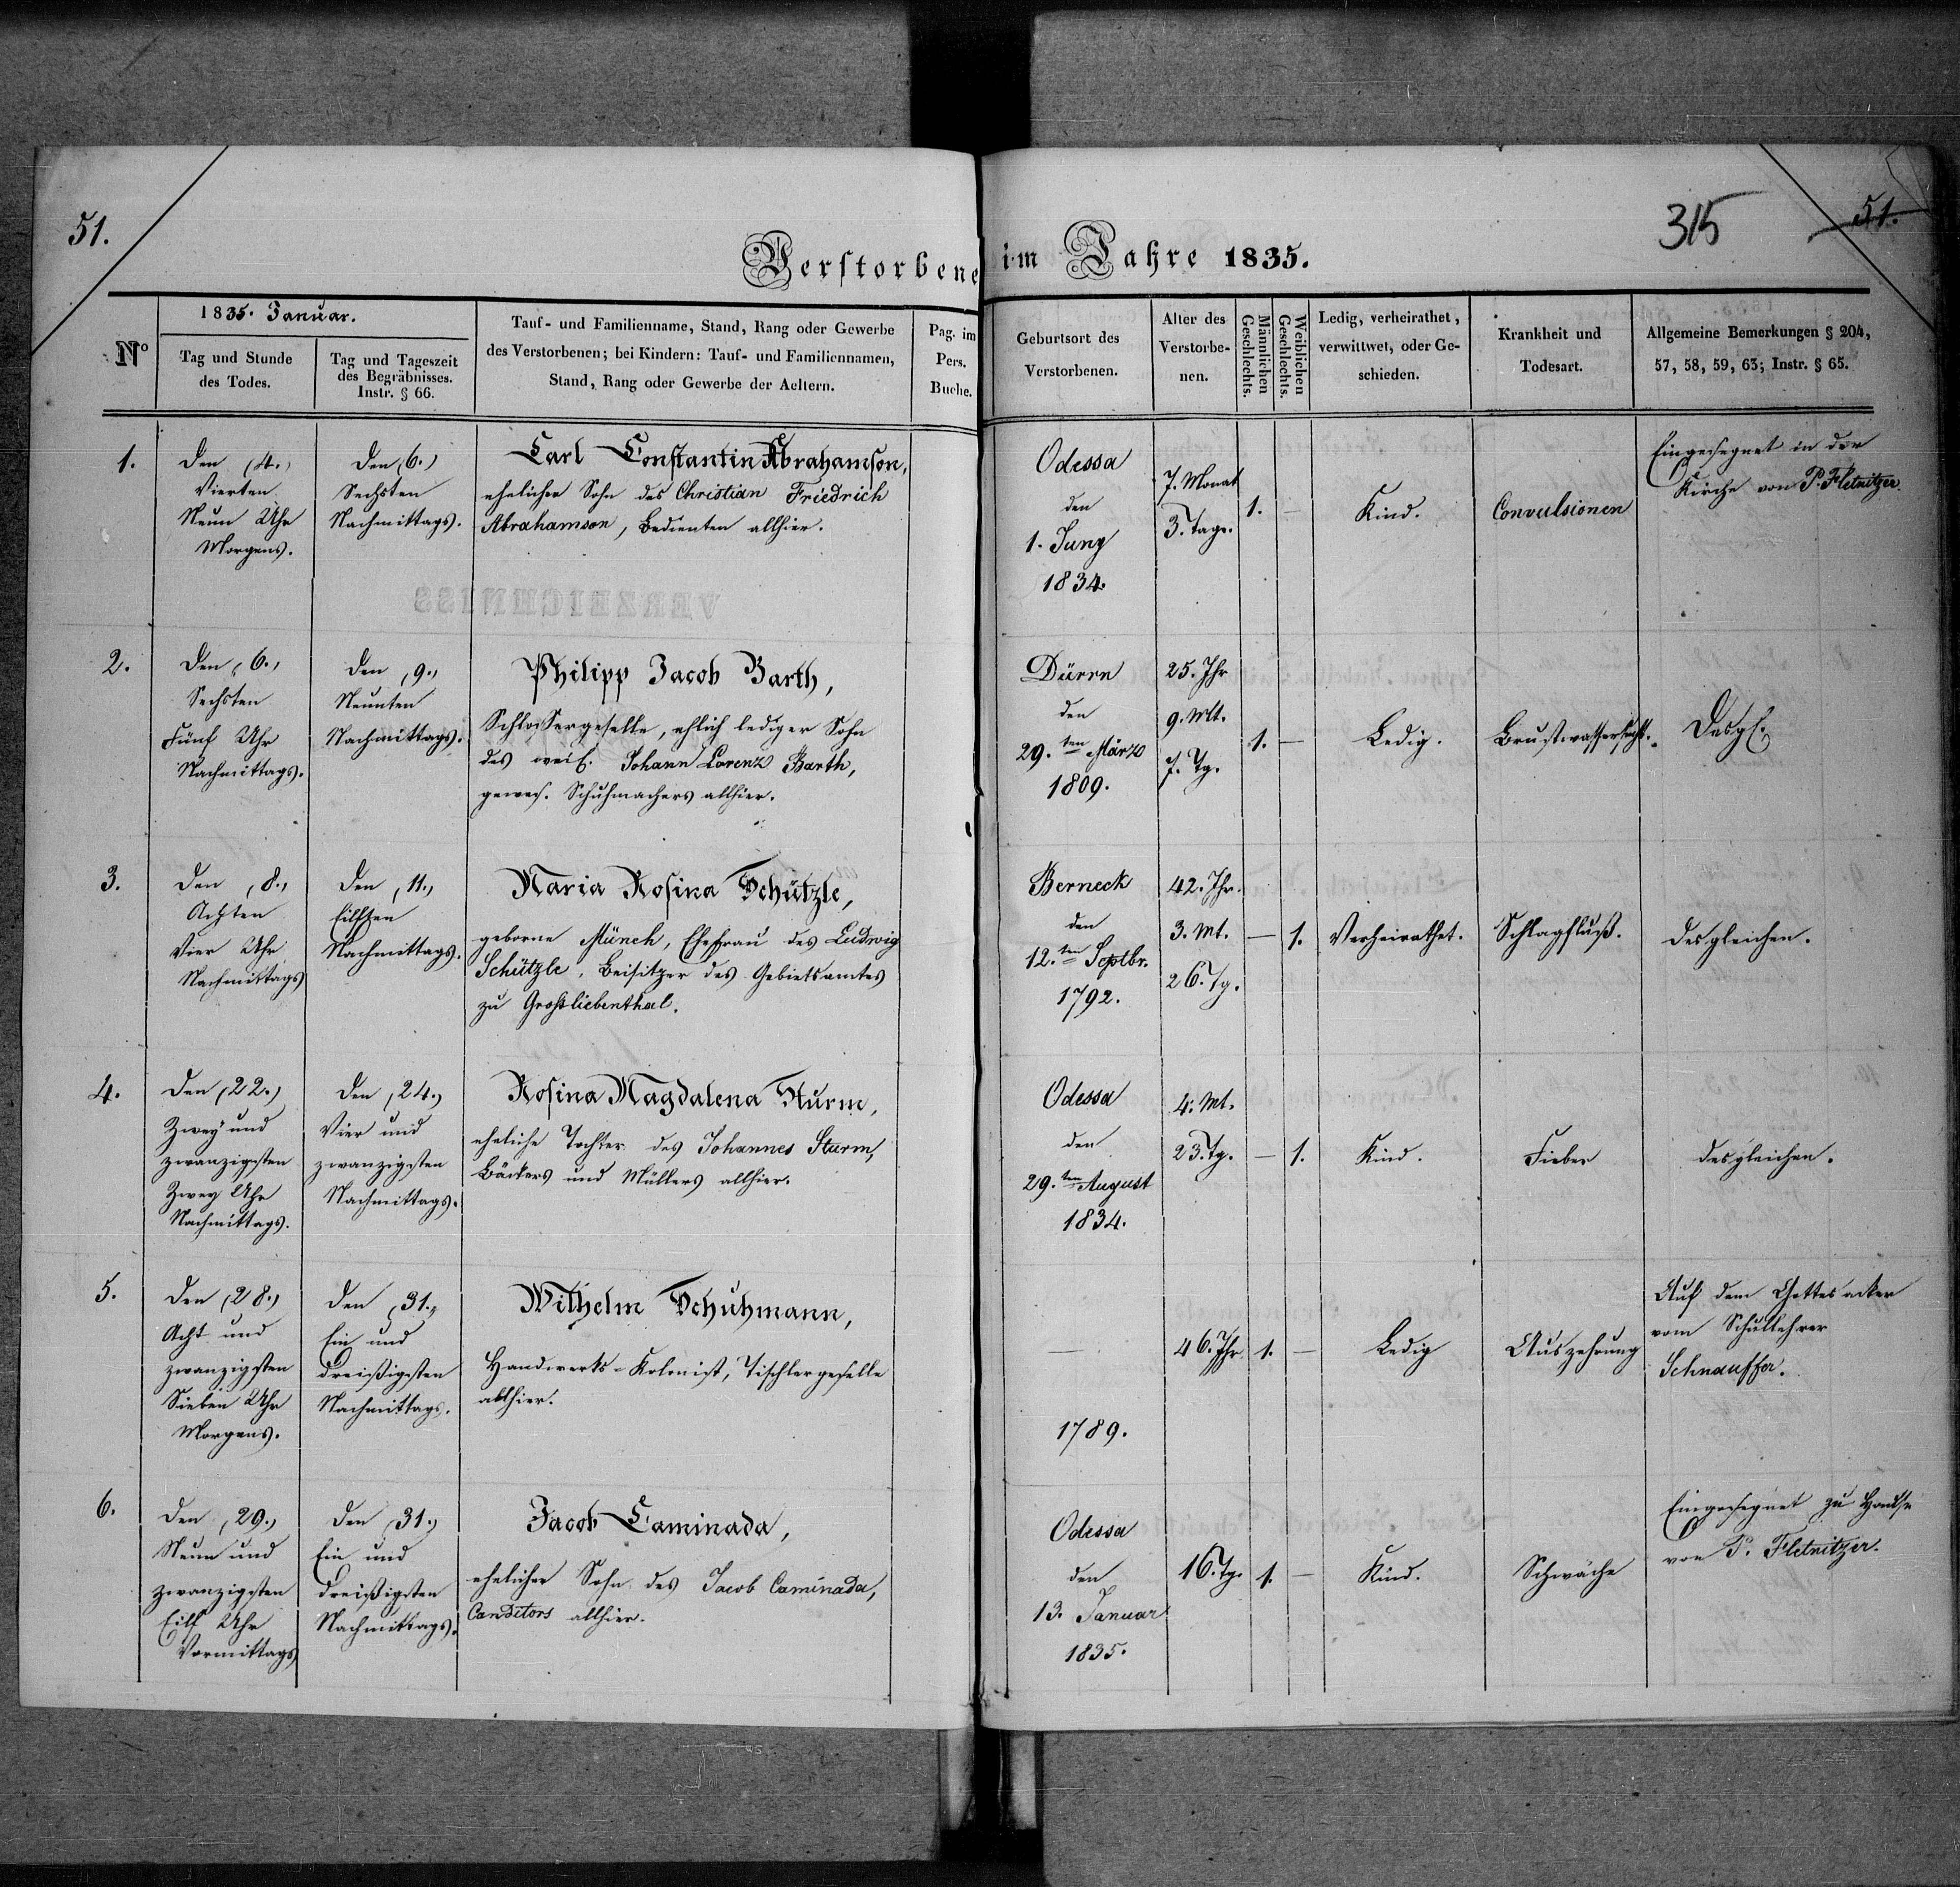 51.
315
51.
Verstorbene im Jahre 1835.
No
1835. Januar.
Tag und Stunde
des Todes.
Tag und Tageszeit
des Begräbnisses.
Instr. § 66.
Tauf- und Familienname, Stand, Rang oder Gewerbe
des Verstorbenen; bei Kindern: Tauf- und Familiennamen,
Stand, Rang oder Gewerbe der Aeltern.
Pag. im
Pers.
Buche.
Geburtsort des
Verstorbenen.
Alter des
Verstorbe-
nen.
Männlichen
Geschlechts.
Weiblichen
Geschlechts.
Ledig, verheirathet,
verwittwet, oder Ge-
schieden.
Krankheit und
Todesart.
Allgemeine Bemerkungen § 204,
57, 58, 59, 63; Instr. § 65.
1.
Den (4.)
Vierten
Neun Uhr
Morgens.
Den (6.)
Sechsten
Nachmittags.
Carl Constantin Abrahamson,
ehelicher Sohn des Christian Friedrich
Abrahamson, Bedienten allhier.
Odessa
den
1. Juny
1834.
7. Monat
3. Tage.
1.
—
Kind.
Convulsionen
Eingesegnet in der
Kirche von P. Fletnitzer.
VERZEICHNISS
2.
Den (6.)
Sechsten
Fünf Uhr
Nachmittags.
Den (9.)
Neunten
Nachmittags.
Philipp Jacob Barth,
Schlossergeselle, ehlich lediger Sohn
des weil. Johann Lorenz Barth,
gewes. Schuhmachers allhier.
Dürrn
den
29.ten März
1809.
25. Jhr
9. Mt.
7. Tg.
1.
—
Ledig.
Brustwassersucht.
Desgl.
3.
Den (8.)
Achten
Vier Uhr
Nachmittags
Den (11.)
Eilften
Nachmittags.
Maria Rosina Schützle,
geborne Münch, Ehefrau des Ludwig
Schützle, Beisitzer des Gebietsamtes
zu Großliebenthal.
Berneck
den
12.ten Septbr.
1792.
42. Jhr.
3. Mt.
26. Tg.
—
1.
Verheirathet.
Schlagfluß.
desgleichen.
4.
Den (22.)
Zwey und
zwanzigsten
Zwey Uhr
Nachmittags.
Den (24.)
Vier und
zwanzigsten
Nachmittags.
Rosina Magdalena Sturm,
eheliche Tochter des Johannes Sturm,
Bäckers und Müllers allhier.
Odessa
den
29.ten August
1834.
4. Mt.
23. Tg.
—
1.
Kind.
Fieber
desgleichen.
5.
Den (28.)
Acht und
zwanzigsten
Sieben Uhr
Morgens.
Den (31.)
Ein und
dreißigsten
Nachmittags.
Wilhelm Schuhmann,
Handwerks-Kolonist, Tischlergeselle
allhier.
—
1789.
46. Jhr.
1.
—
Ledig
Auszehrung
Auf dem Gottesacker
vom Schullehrer
Schnauffer.
6.
Den (29.)
Neun und
zwanzigsten
Eilf Uhr
Vormittags
Den (31.)
Ein und
dreißigsten
Nachmittags.
Jacob Caminada,
ehelicher Sohn des Jacob Caminada,
Canditors allhier.
Odessa
den
13. Januar
1835.
16. Tg.
1.
—
Kind.
Schwäche
Eingesegnet zu Hause
von P. Fletnitzer.